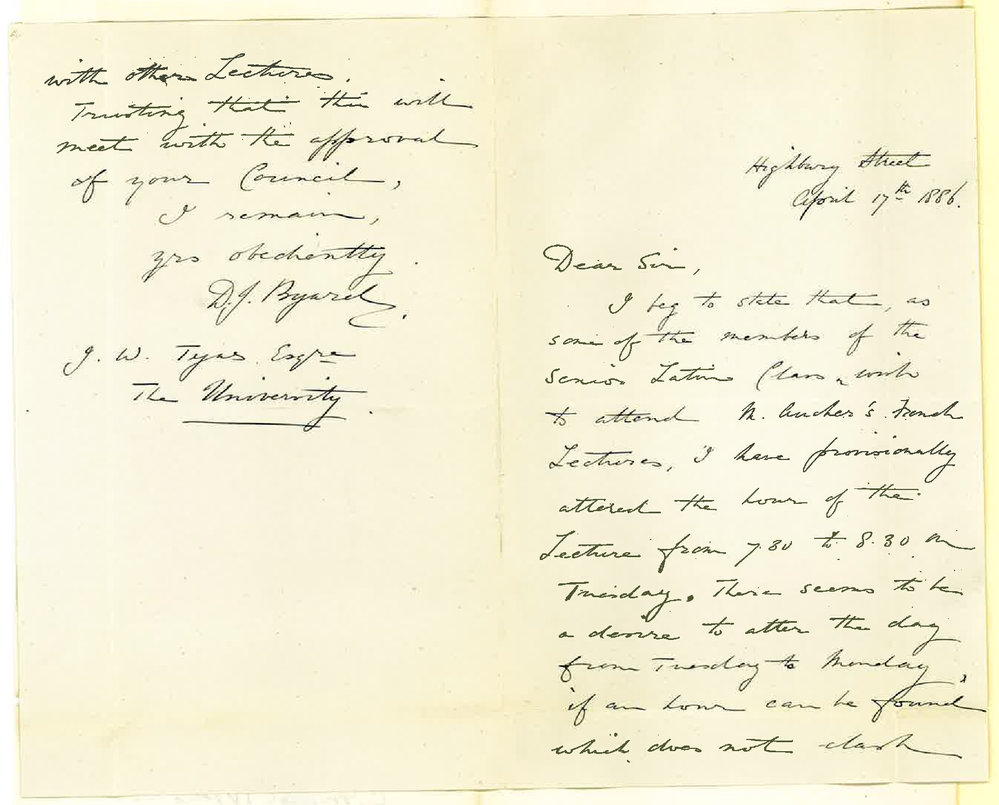 Highbury Street
April 17th 1886.
Dear Sir,
I beg to state that, as
some of the members of the
Senior Latin Class wish
to attend M. Aucher's French
Lectures, I have provisionally
altered the hour of the
Lecture from 7.30 to 8.30 on
Tuesday. There seems to be
a desire to alter the day
from Tuesday to Monday,
if an hour can be found
which does not clash
with other Lectures.
Trusting that this will
meet with the approval
of your Council,
I remain,
yrs obediently.
D.J. Byard.
J. W. Tyas Esqre
The University.